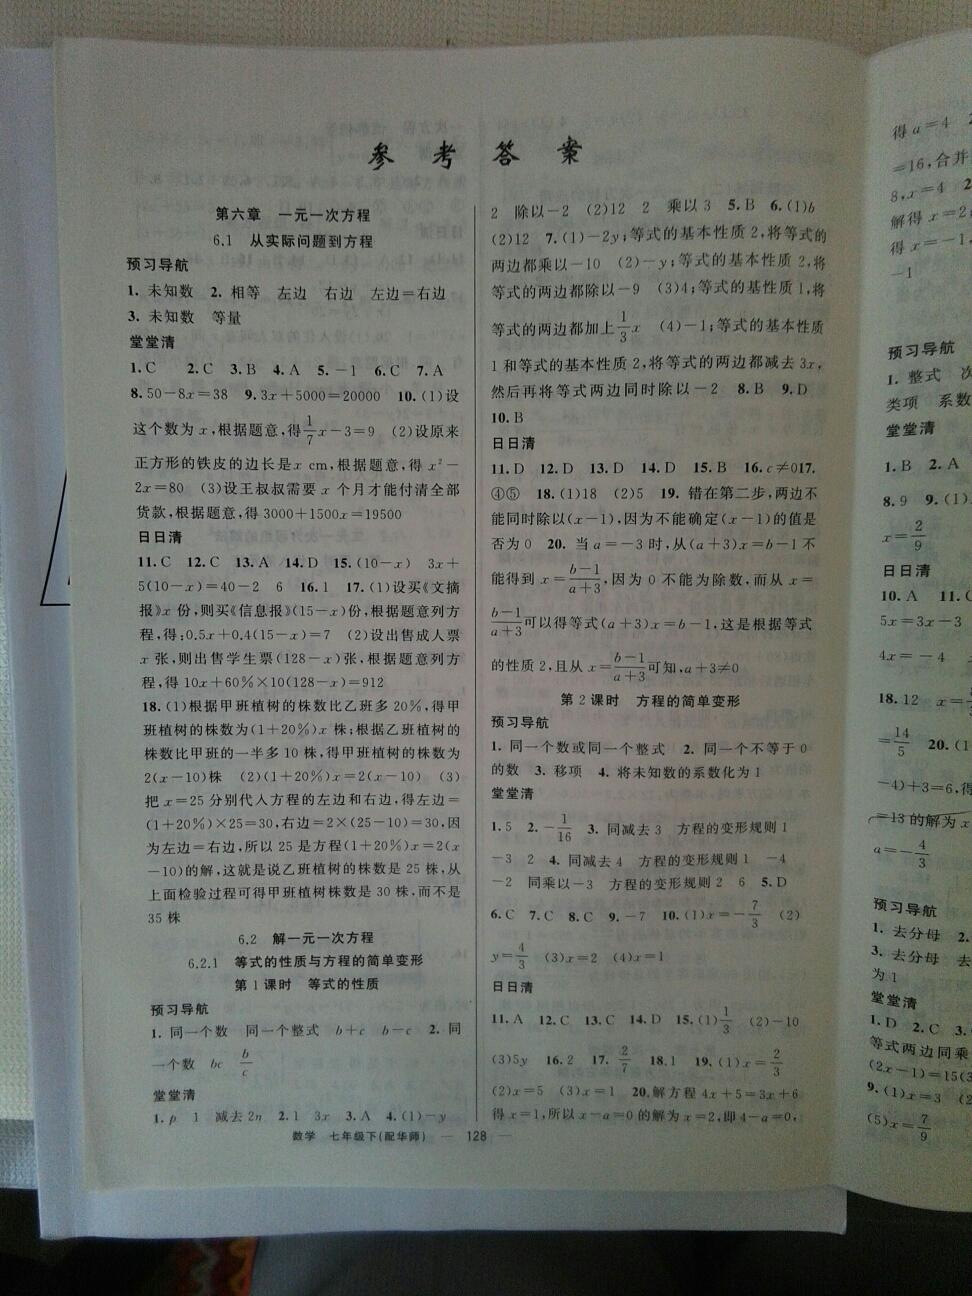 参考答案
第六章 一元一次方程
6.1 从实际问题到方程
预习导航
1. 未知数 2. 相等 左边 右边 左边=右边
3. 未知数 等量
堂堂清
1. C 2. C 3. B 4. A 5. -1 6. C 7. A
8. 50-8x=38 9. 3x+5000=20000 10. (1)设
这个数为 x,根据题意,得1/7x-3=9 (2)设原来
正方形的铁皮的边长是x cm,根据题意,得 x²-
2x=80 (3)设王叔叔需要 x 个月才能付清全部
货款,根据题意,得 3000+1500x=19500
日日清
11. C 12. C 13. A 14. D 15. (10-x) 3x+
5(10-x)=40-2 6 16. 1 17. (1)设买《文摘
报》x 份,则买《信息报》(15-x)份,根据题意列方
程,得:0.5x+0.4(15-x)=7 (2)设出售成人票
x 张,则出售学生票(128-x)张,根据题意列方
程,得 10x+60%×10(128-x)=912
18. (1)根据甲班植树的株数比乙班多 20%,得甲
班植树的株数为(1+20%)x 株;根据乙班植树的
株数比甲班的一半多 10 株,得甲班植树的株数为
2(x-10)株 (2)(1+20%)x=2(x-10) (3)
把 x=25 分别代人方程的左边和右边,得左边=
(1+20%)×25=30,右边=2×(25-10)=30,因
为左边=右边,所以 25 是方程(1+20%)x=2(x
-10)的解,这就是说乙班植树的株数是 25 株,从
上面检验过程可得甲班植树株数是 30 株,而不是
35 株
6.2 解一元一次方程
6.2.1 等式的性质与方程的简单变形
第 1 课时 等式的性质
预习导航
1. 同一个数 同一个整式 b+c b-c 2. 同
一个数 bc b/c
堂堂清
1. p 1 减去 2n 2. 1 3x 3. A 4. (1)-y
2 除以-2 (2)12 2 乘以 3 5. B 6. (1)b
(2)12 7. (1)-2y;等式的基本性质 2,将等式的
两边都乘以-10 (2)-y;等式的基本性质 2,将
等式的两边都除以-9 (3)4;等式的基性质 1,将
等式的两边都加上1/3x (4)-1;等式的基本性质
1 和等式的基本性质 2,将等式的两边都减去 3x,
然后再将等式两边同时除以-2 8. B 9. D
10. B
日日清
11. D 12. D 13. D 14. D 15. B 16. c≠017.
④⑤ 18. (1)18 (2)5 19. 错在第二步,两边不
能同时除以(x-1),因为不能确定(x-1)的值是
否为 0 20. 当 a=-3 时,从(a+3)x=b-1 不
能得到 x=(b-1)/(a+3),因为 0 不能为除数,而从 x=
(b-1)/(a+3)可以得等式(a+3)x=b-1,这是根据等式
的性质 2,且从 x=(b-1)/(a+3)可知,a+3≠0
第 2 课时 方程的简单变形
预习导航
1. 同一个数或同一个整式 2. 同一个不等于 0
的数 3. 移项 4. 将未知数的系数化为 1
堂堂清
1. 5 2. -1/16 3. 同减去 3 方程的变形规则 1
-3 2 4. 同减去 4 方程的变形规则 1 -4
-2 同乘以-3 方程的变形规则 2 6 5. D
6. C 7. C 8. C 9. -7 10. (1)x=-7/3 (2)
y=4/3 (3)x=2 (4)x=1
日日清
11. A 12. C 13. C 14. D 15. (1)1/3 (2)-10
(3)5y 16. 2 17. 2/7 18. 1 19. (1)x=2/3
(2)x=5 (3)x=1 20. 解方程 4x+5=3x+6
得 x=1,所以 x-a=0 的解为 x=2,即 4-a=0,
数学 七年级下(配华师) — 128 —
得 a=4
=16,合并
8,x=4
解得 x=2
得 x=-1,
-1
预习导航
1. 整式 次
类项 系数
堂堂清
1. B 2. A
8. 9 9. (1)
x=2/9
日日清
10. A 11.
5x=3x-3
4x=-4
18. 12 x=
=14/5 20. (1)
-4)+3=6,得
=13 的解为 x
a=-4/3
预习导航
1. 去分母 2.
3. 去分母 去
为 1
堂堂清
1. D 2. C 3.
等式两边同乘
(2x-1)=15(3
9. (1)x=3 (2
(5)x=7/9